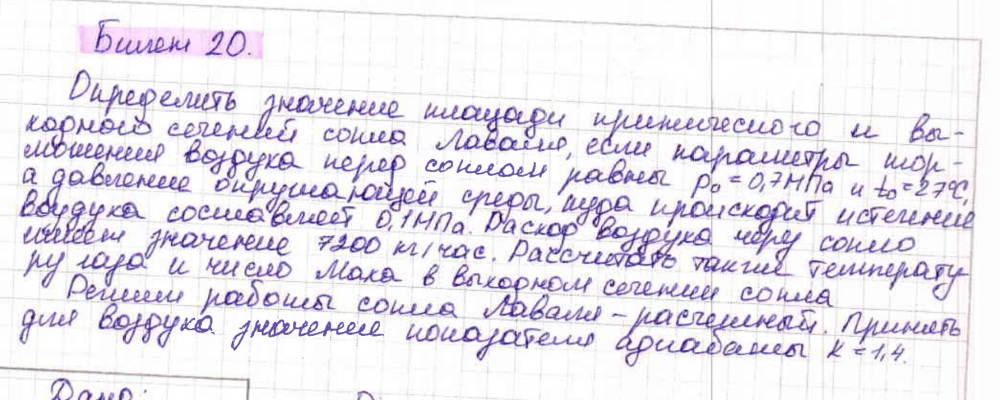 Билет 20.
Определить значение площади критического и вы-
ходного сечений сопла Лаваля, если параметры тор-
можения воздуха перед соплом равны p₀=0,7МПа и t₀=27°С,
а давление окружающей среды, куда происходит истечение
воздуха составляет 0,1МПа. Расход воздуха через сопло
имеет значение 7200 кг/час. Рассчитать также температу
ру газа и число Маха в выходном сечении сопла
Режим работы сопла Лаваля - расчетный. Принять
для воздуха значение показателя адиабаты k=1,4.
Дано: